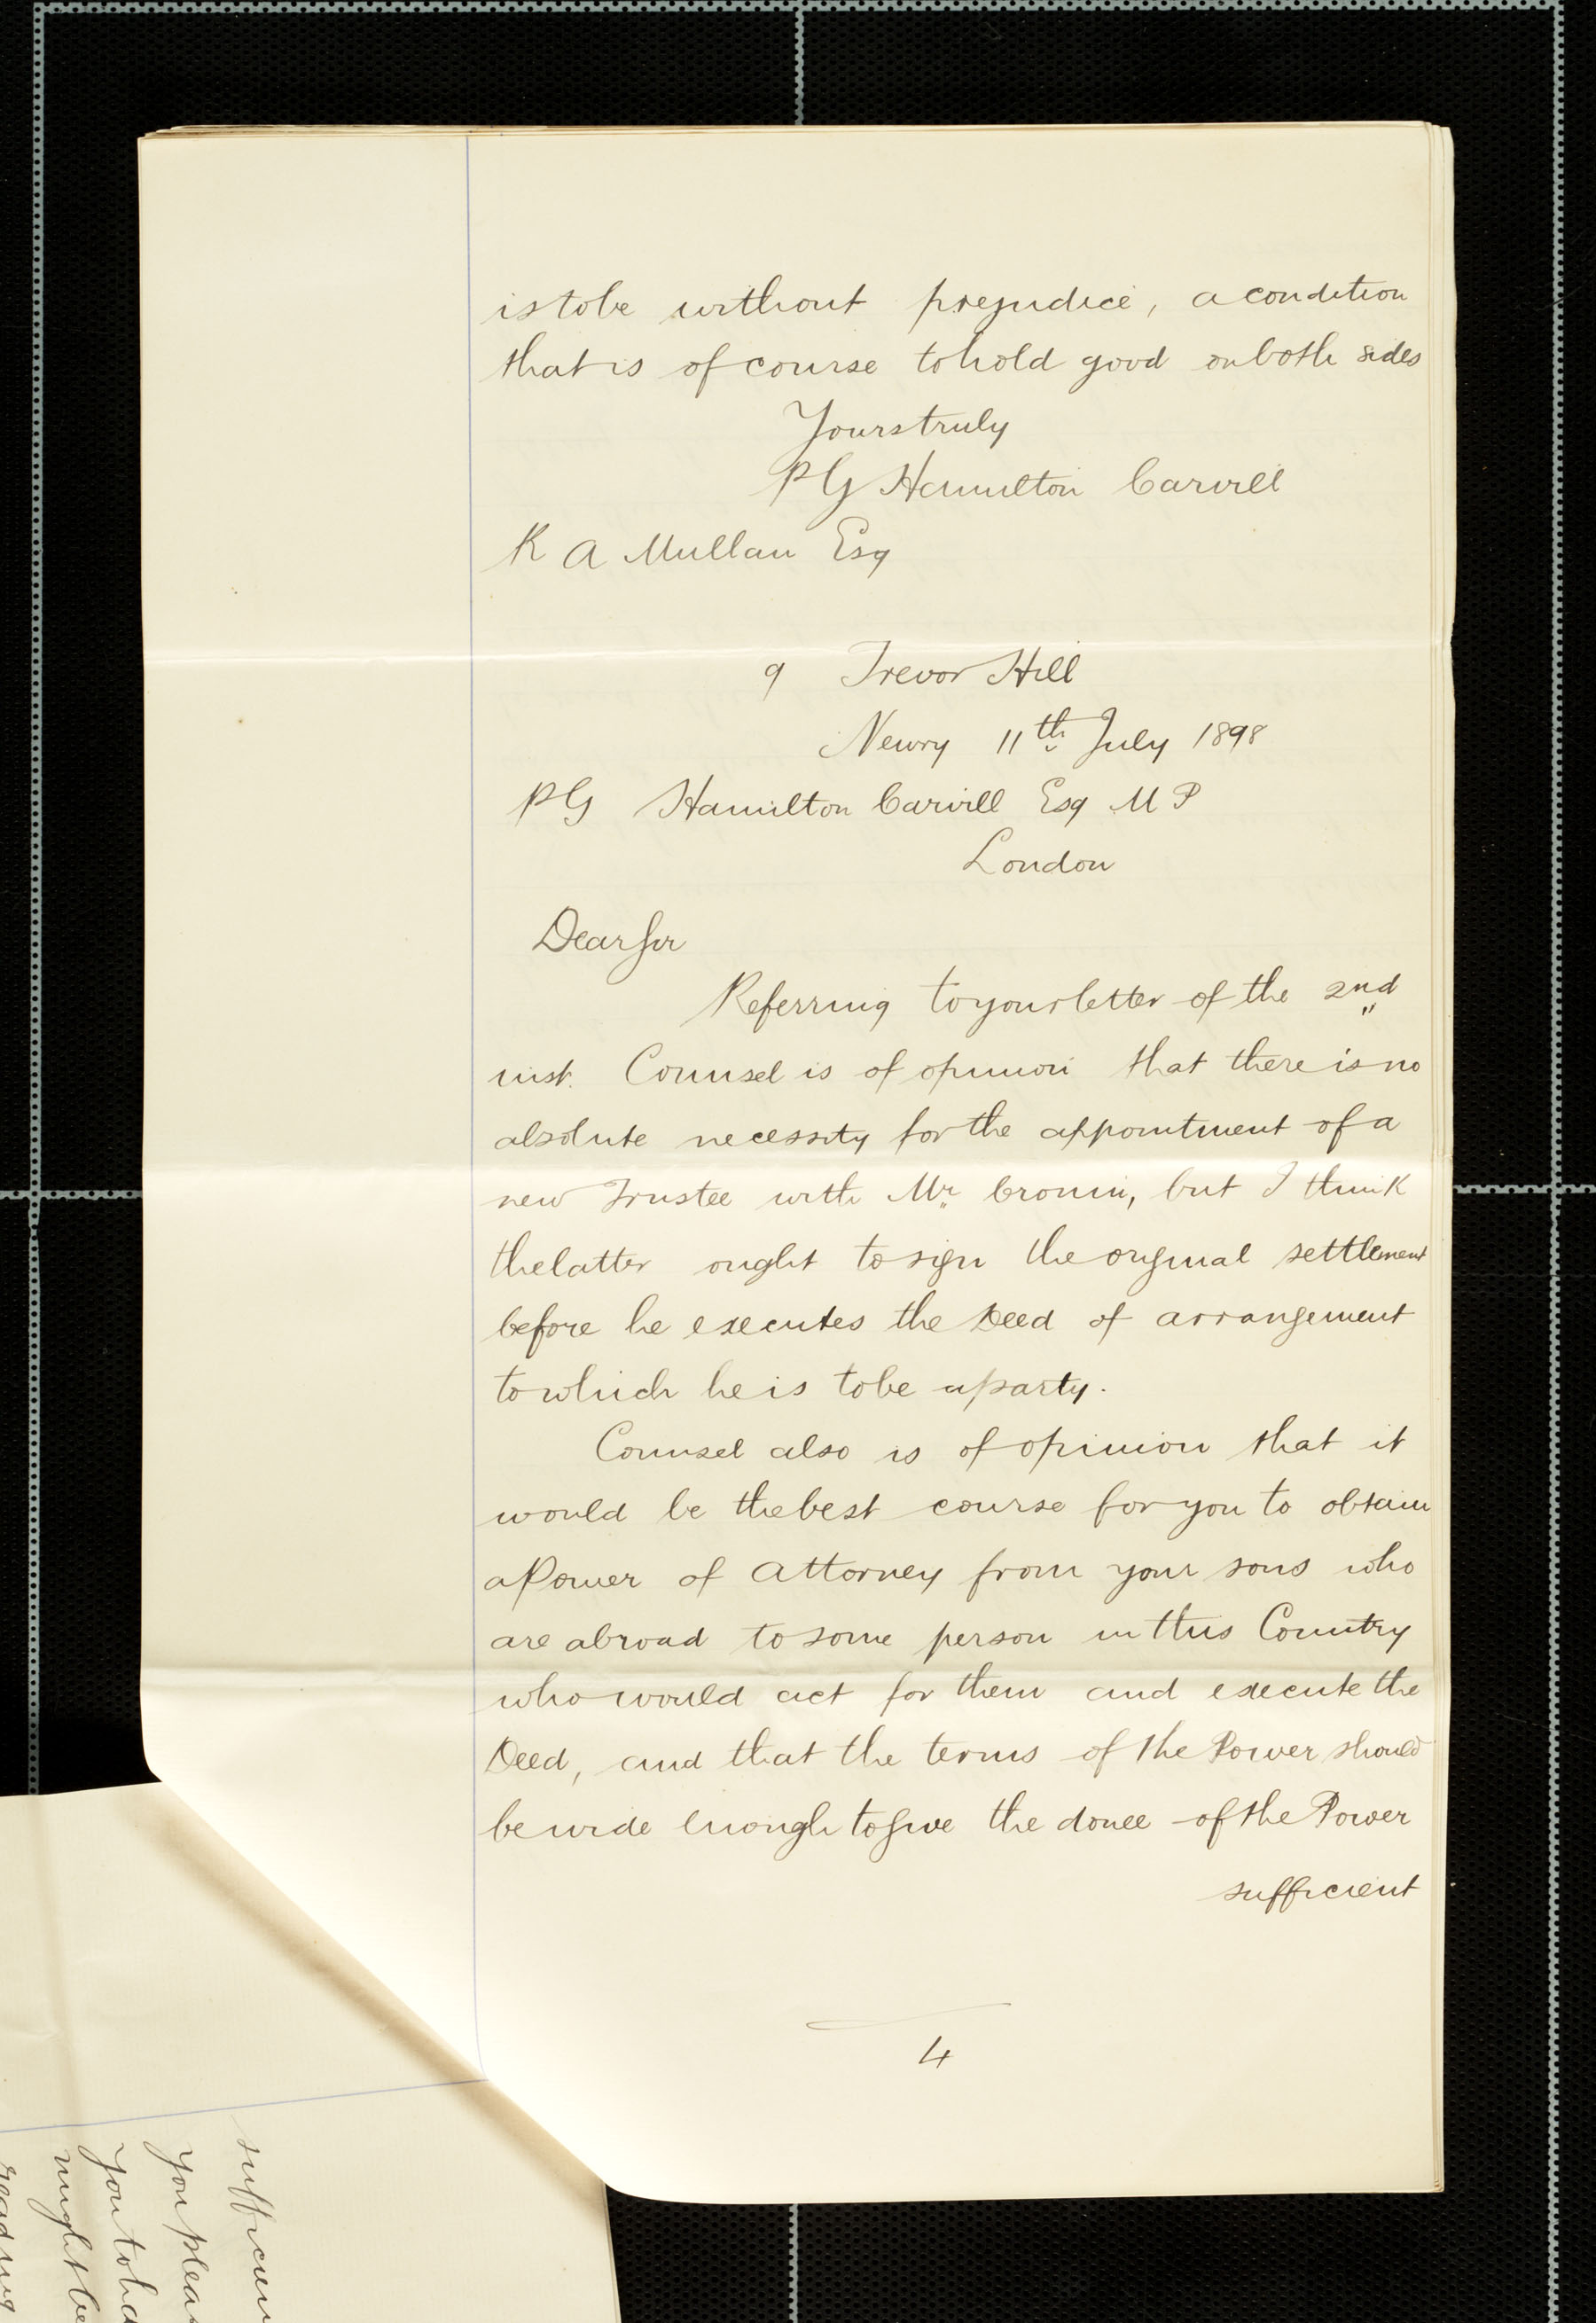 is to be without prejudice, a condition
that is of course to hold good on both sides
Yours truly
P G Hamilton Carvill
K A Mullan Esq
9 Trevor Hill
Newry 11th July 1898
P G Hamilton Carvill Esq M P
London
Dear Sir
Referring to your letter of the 2nd
inst. Counsel is of opinion that there is no
absolute necessity for the appointment of a
new Trustee with Mr Cronin, but I think
the latter ought to sign the original settlement
before he executes the Deed of arrangement
to which he is to be a party.
Counsel also is of opinion that it
would be the best course for you to obtain
a Power of Attorney from your sons who
are abroad to some person in this Country
who would act for them and execute the
Deed, and that the terms of the Power should
be wide enough to give the donee of the Power
sufficient
4
sufficien
you plea
you to ha
might be
reading